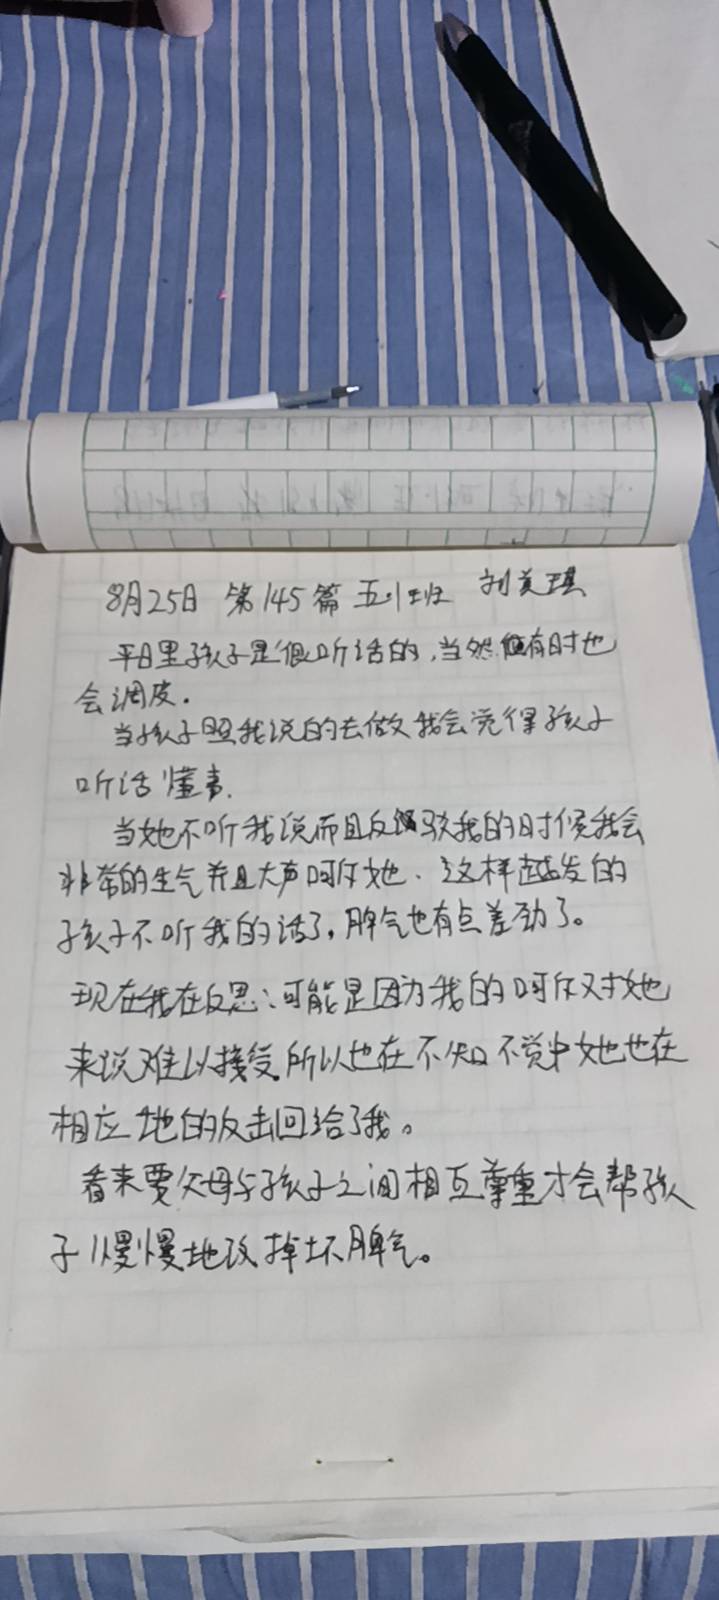 8月25日 第145篇 五.1班 刘美琪
平日里孩子是很听话的,当然有时也
会调皮.
当孩子照我说的去做我会觉得孩子
听话懂事.
当她不听我说而且反驳我的时候我会
非常的生气并且大声呵斥她.这样越发的
孩子不听我的话了,脾气也有点差劲了。
现在我在反思:可能是因为我的呵斥对她
来说难以接受.所以也在不知不觉中她也在
相应地的反击回给了我。
看来要父母与孩子之间相互尊重才会帮孩
子慢慢地改掉坏脾气。